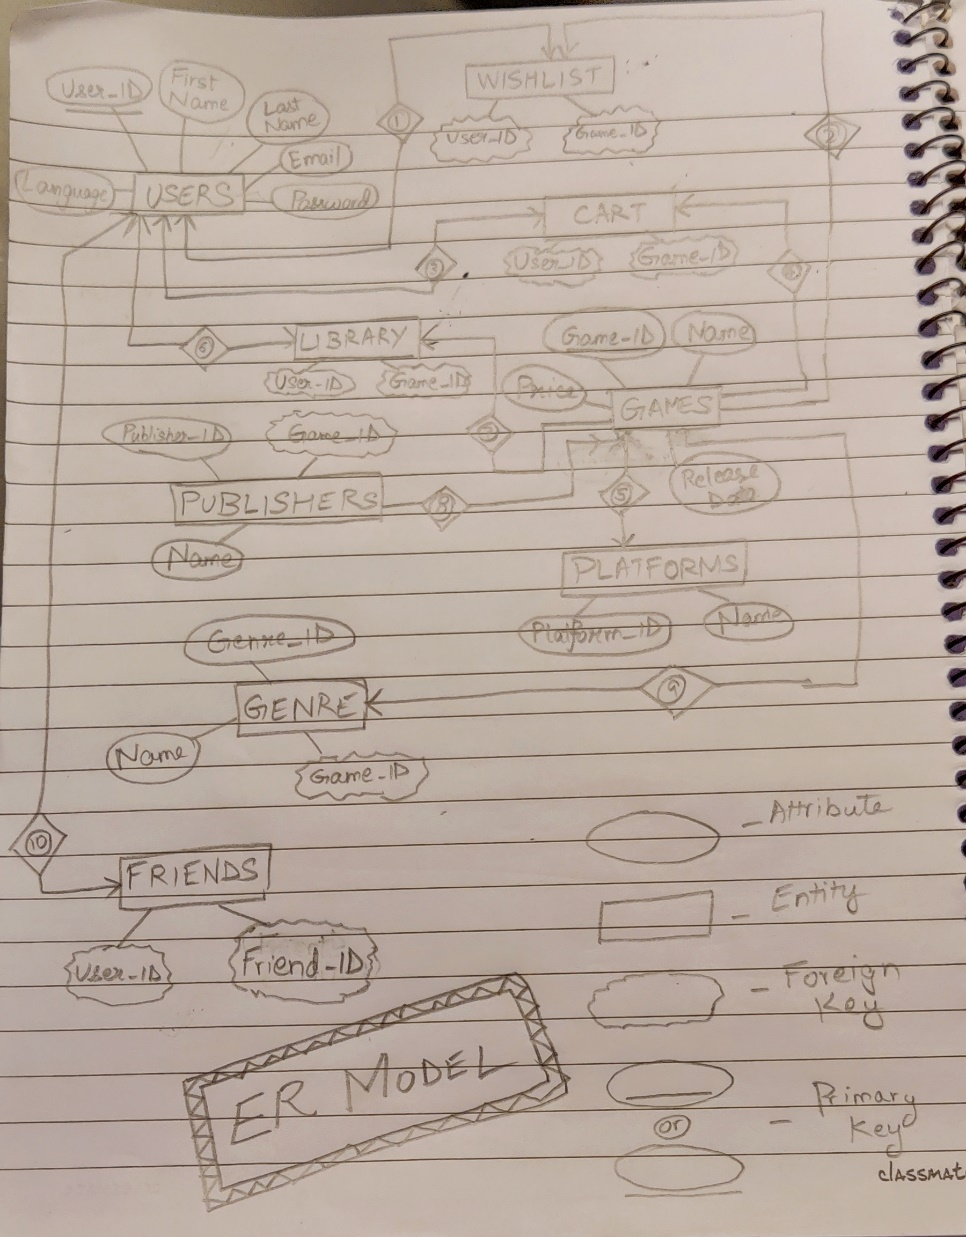 WISHLIST
User_ID
First
Name
Last
Name
Email
Language
USERS
Password
1
User_ID
Game_ID
2
CART
User_ID
Game_ID
3
4
6
LIBRARY
User_ID
Game_ID
Game_ID
Name
Price
GAMES
Publisher_ID
Game_ID
PUBLISHERS
Name
8
5
Release
PLATFORMS
Platform_ID
Name
Genre_ID
GENRE
9
Name
Game_ID
10
FRIENDS
User_ID
Friend_ID
ER MODEL
- Attribute
- Entity
- Foreign
Key
or
- Primary
Key
classmat